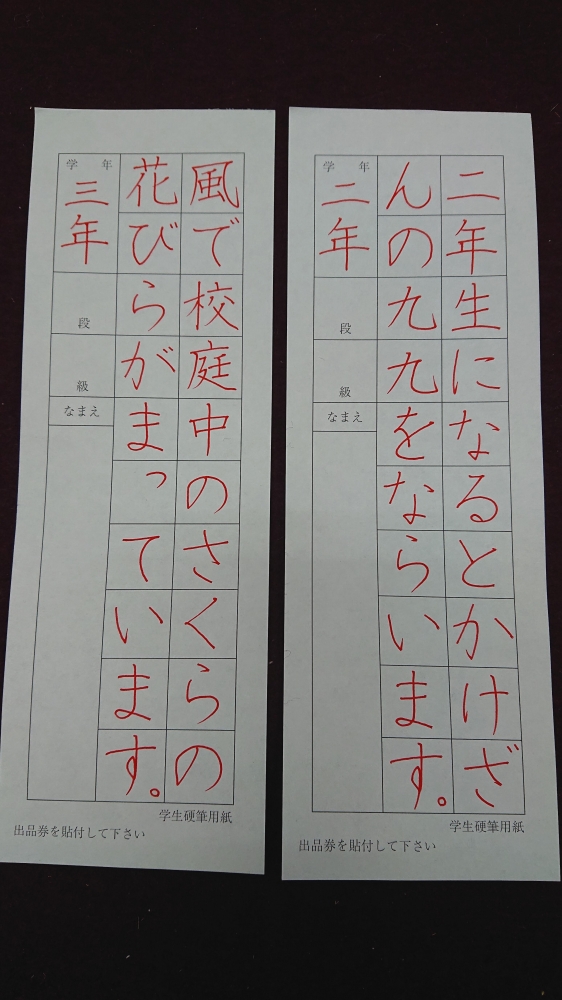 二年生になるとかけざ
んの九九をならいます。
学年
二年
段
級
なまえ
学生硬筆用紙
出品券を貼付して下さい
風で校庭中のさくらの
花びらがまっています。
学年
三年
段
級
なまえ
学生硬筆用紙
出品券を貼付して下さい